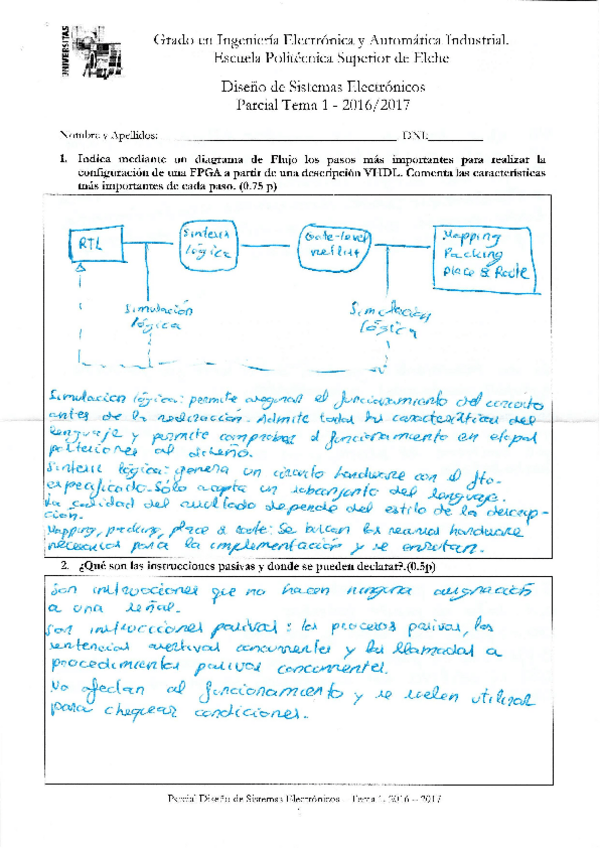 UNIVERSITAS
Grado en Ingeniería Electrónica y Automática Industrial.
Escuela Politécnica Superior de Elche
Diseño de Sistemas Electrónicos
Parcial Tema 1 - 2016/2017
Nombre y Apellidos: DNI:
1. Indica mediante un diagrama de Flujo los pasos más importantes para realizar la
configuración de una FPGA a partir de una descripción VHDL. Comenta las características
más importantes de cada paso. (0.75 p)
RTL
Síntesis
lógica
Gate-level
netlist
Mapping
Packing
place & Route
Simulación
lógica
Simulación
lógica
Simulación lógica: permite asegurar el funcionamiento del circuito
antes de la realización. Admite todas las características del
lenguaje y permite comprobar el funcionamiento en etapas
posteriores al diseño.
Síntesis lógica: genera un circuito hardware con el fto.
especificado. Sólo acepta un subconjunto del lenguaje.
La calidad del resultado depende del estilo de la descrip-
ción.
Mapping, packing, place & route: Se buscan los recursos hardware
necesarios para la implementación y se enrutan.
2. ¿Qué son las instrucciones pasivas y donde se pueden declarar?.(0.5p)
Son instrucciones que no hacen ninguna asignación
a una señal.
Son instrucciones pasivas: los procesos pasivos, las
sentencias asertivas concurrentes y las llamadas a
procedimientos pasivos concurrentes.
No afectan al funcionamiento y se suelen utilizar
para chequear condiciones.
Parcial Diseño de Sistemas Electrónicos – Tema 1. 2016 – 2017